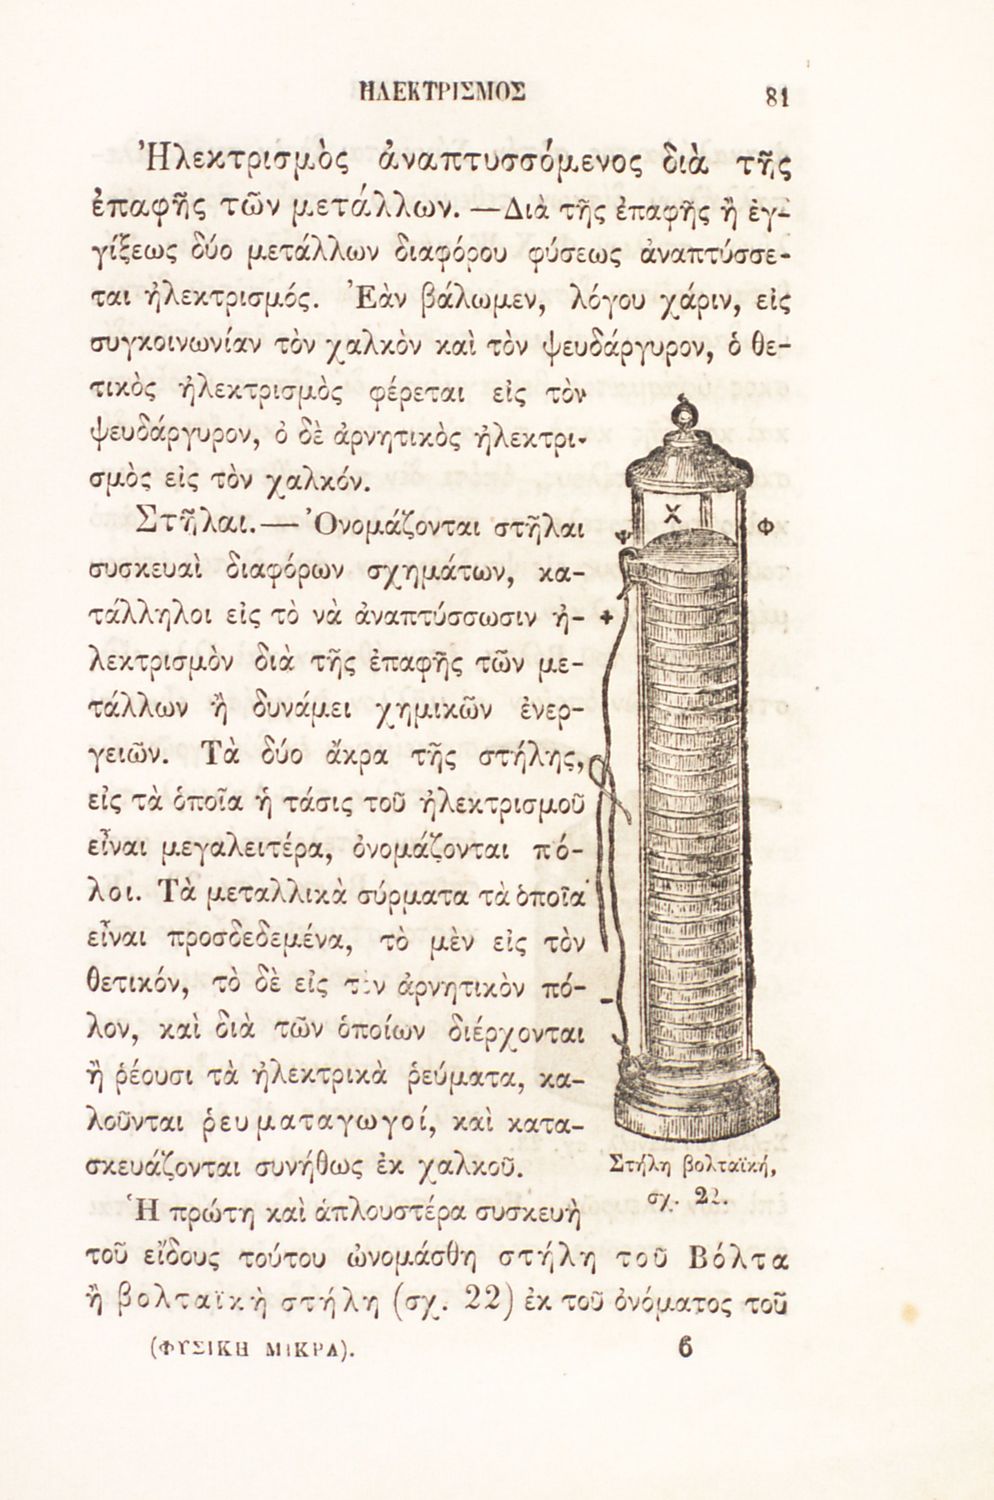 ΗΛΕΚΤΡΙΣΜΟΣ 81
Ἠλεκτρισμὸς ἀναπτυσσόμενος διὰ τῆς
ἐπαφῆς τῶν μετάλλων. —Διὰ τῆς ἐπαφῆς ἢ ἐγ-
γίξεως δύο μετάλλων διαφόρου φύσεως ἀναπτύσσε-
ται ἠλεκτρισμός. Ἐὰν βάλωμεν, λόγου χάριν, εἰς
συγκοινωνίαν τὸν χαλκὸν καὶ τὸν ψευδάργυρον, ὁ θε-
τικὸς ἠλεκτρισμὸς φέρεται εἰς τὸν
ψευδάργυρον, ὁ δὲ ἀρνητικὸς ἠλεκτρι-
σμὸς εἰς τὸν χαλκόν.
Στῆλαι.— Ὀνομάζονται στῆλαι
συσκευαὶ διαφόρων σχημάτων, κα-
τάλληλοι εἰς τὸ νὰ ἀναπτύσσωσιν ἠ-
λεκτρισμὸν διὰ τῆς ἐπαφῆς τῶν με-
τάλλων ἢ δυνάμει χημικῶν ἐνερ-
γειῶν. Τὰ δύο ἄκρα τῆς στήλης,
εἰς τὰ ὁποῖα ἡ τάσις τοῦ ἠλεκτρισμοῦ
εἶναι μεγαλειτέρα, ὀνομάζονται πό-
λοι. Τὰ μεταλλικὰ σύρματα τὰ ὁποῖα
εἶναι προσδεδεμένα, τὸ μὲν εἰς τὸν
θετικόν, τὸ δὲ εἰς τὸν ἀρνητικὸν πό-
λον, καὶ διὰ τῶν ὁποίων διέρχονται
ἢ ῥέουσι τὰ ἠλεκτρικὰ ῥεύματα, κα-
λοῦνται ῥευματαγωγοί, καὶ κατα-
σκευάζονται συνήθως ἐκ χαλκοῦ.
Χ
Ψ Φ
+
-
Στήλη βολταϊκή,
σχ. 22.
Ἡ πρώτη καὶ ἁπλουστέρα συσκευὴ
τοῦ εἴδους τούτου ὠνομάσθη στήλη τοῦ Βόλτα
ἢ βολταϊκὴ στήλη (σχ. 22) ἐκ τοῦ ὀνόματος τοῦ
(ΦΥΣΙΚΗ ΜΙΚΡΑ). 6